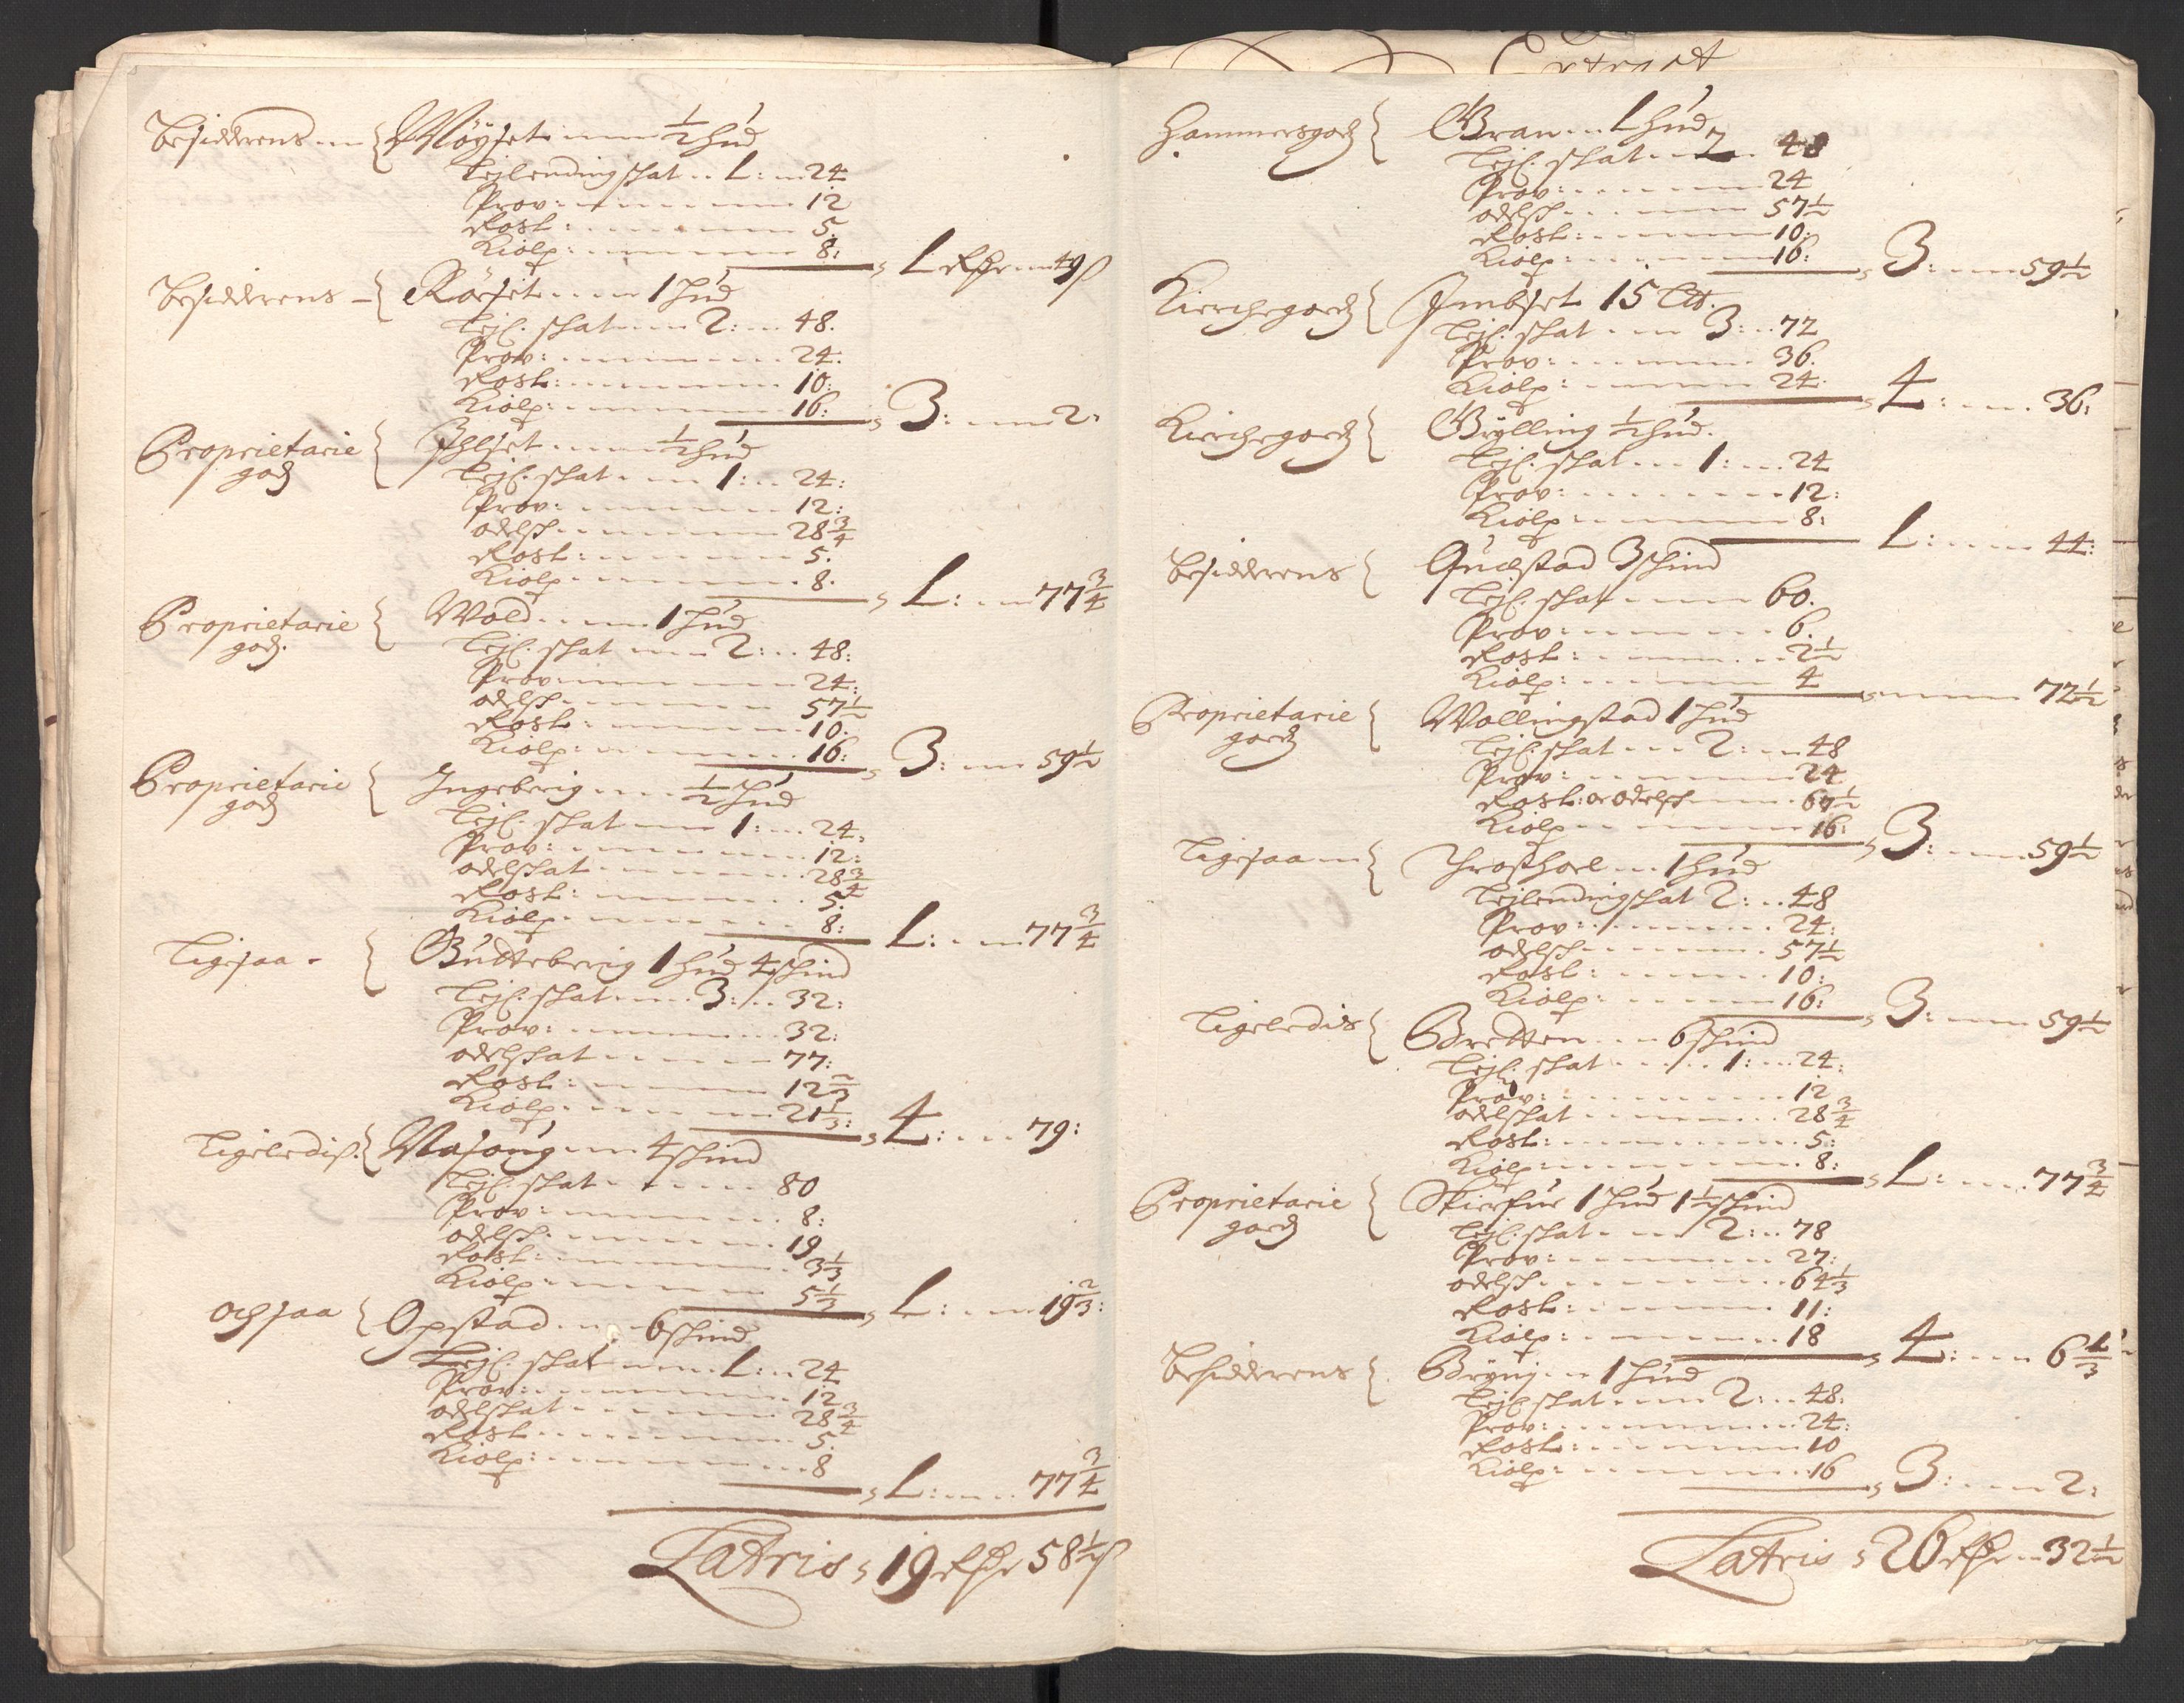 Besidderens { Nøyset ½ hud
Lejlending skat 1: 24
Prov: 12
Rost: 5:
Kiøltz: 8: 1 Rdr 49 s
Besidderens { Røeset 1 hud
Lejl: skat 2: 48.
Prov: 24.
Rost: 10:
Kiøltz: 16: 3: 2:
Proprietarie godz { Ihlset ½ hud
Lejl: skat 1: 24:
Prov: 12:
odelsk: 28 3/4
Rost: 5.
Kiøltz: 8. 1: 77 3/4
Proprietarie godz. { Wold 1 hud
Lejl: skat 2: 48:
Prov: 24:
odelsk: 57 ½
Rost: 10:
Kiøltz: 16: 3: 59 ½
Proprietarie godz { Ingeberig ½ hud
Lejl: skat 1: 24,
Prov: 12:
odelskat 28 3/4
Rost: 5:
Kiøltz: 8: 1: 77 3/4
Ligesaa { Gudteberig 1 hud 4 skind
Lejl: skat 3: 32:
Prov: 32:
odelskat 77:
Rost: 12 2/3
Kiøltz: 21 1/3: 4: 79:
Ligeledis: { Nasoug 4 skind
Lejl: skat 80
Prov: 8:
odelsk: 19
Rost: 3 1/3
Kiøltz: 5 1/3 1: 19 2/3:
och saa { Opstad 6 skind
Lejl: skat 1: 24
Prov: 12
odelskat 28 3/4
Rost 5.
Kiøltz: 8 1: 77 3/4
Latris 19 Rdr 58 ½ s
Extract
Hammersgodz { Gran 1 hud
Lejl: skat 2 48
Prov: 24
odelsk: 57 ½
Rost: 10:
Kiøltz: 16: 3: 59 ½
Kierchegodz { Imbset 15 Lb:
Lejl: skat 3: 72
Prov: 36.
Kiøltz: 24. 4: 36:
Kierchegodz { Gylling ½ hud.
Lejl: skat 1: 24
Prov: 12:
Kiøltz: 8: 1: 44:
Besidderens { Quæstad 3 skind
Lejl: skat 60.
Prov: 6.
Rost: 2 ½
Kiøltz: 4 72 ½
Proprietarie godz { Wollingstad 1 hud
Lejl: skat 2: 48
Prov: 24
Rost: oc odelsk 67 ½
Kiøltz 16: 3: 59 ½
Ligesaa { Throshoel 1 hud
Lejlendingskat 2: 48
Prov: 24:
odelsk: 57 ½
Rost: 10:
Kiøltz: 16: 3: 59 ½
Ligeledis { Bretten 6 skind
Lejl: skat 1: 24:
Prov: 12
odelskat 28 3/4
Rost: 5:
Kiøltz: 8: 1: 77 3/4
Proprietarie godz { Skierfue 1 hud 1 ½ skind
Lejl: skat 2: 78
Prov: 27:
odelsk: 64 1/3
Rost: 11:
Kiøltz: 18 4: 6 1/3
Besidderens { Bryni 1 hud
Lejl: skat 2: 48:
Prov: 24:
Rost: 10
Kiøltz: 16 3: 2:
Latris 26 Rdr 32 ½